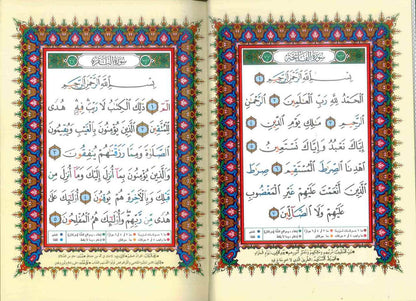 سورة الفاتحة
بِسْمِ ٱللَّهِ ٱلرَّحْمَٰنِ ٱلرَّحِيمِ ١
ٱلْحَمْدُ لِلَّهِ رَبِّ ٱلْعَٰلَمِينَ ٢ ٱلرَّحْمَٰنِ
ٱلرَّحِيمِ ٣ مَٰلِكِ يَوْمِ ٱلدِّينِ ٤
إِيَّاكَ نَعْبُدُ وَإِيَّاكَ نَسْتَعِينُ ٥
ٱهْدِنَا ٱلصِّرَٰطَ ٱلْمُسْتَقِيمَ ٦ صِرَٰطَ
ٱلَّذِينَ أَنْعَمْتَ عَلَيْهِمْ غَيْرِ ٱلْمَغْضُوبِ
عَلَيْهِمْ وَلَا ٱلضَّآلِّينَ ٧
سورة البقرة
بِسْمِ ٱللَّهِ ٱلرَّحْمَٰنِ ٱلرَّحِيمِ
الٓمٓ ١ ذَٰلِكَ ٱلْكِتَٰبُ لَا رَيْبَ فِيهِ هُدًى
لِّلْمُتَّقِينَ ٢ ٱلَّذِينَ يُؤْمِنُونَ بِٱلْغَيْبِ وَيُقِيمُونَ
ٱلصَّلَوٰةَ وَمِمَّا رَزَقْنَٰهُمْ يُنفِقُونَ ٣
وَٱلَّذِينَ يُؤْمِنُونَ بِمَآ أُنزِلَ إِلَيْكَ وَمَآ أُنزِلَ مِن
قَبْلِكَ وَبِٱلْءَاخِرَةِ هُمْ يُوقِنُونَ ٤ أُو۟لَٰٓئِكَ عَلَىٰ
هُدًى مِّن رَّبِّهِمْ وَأُو۟لَٰٓئِكَ هُمُ ٱلْمُفْلِحُونَ ٥